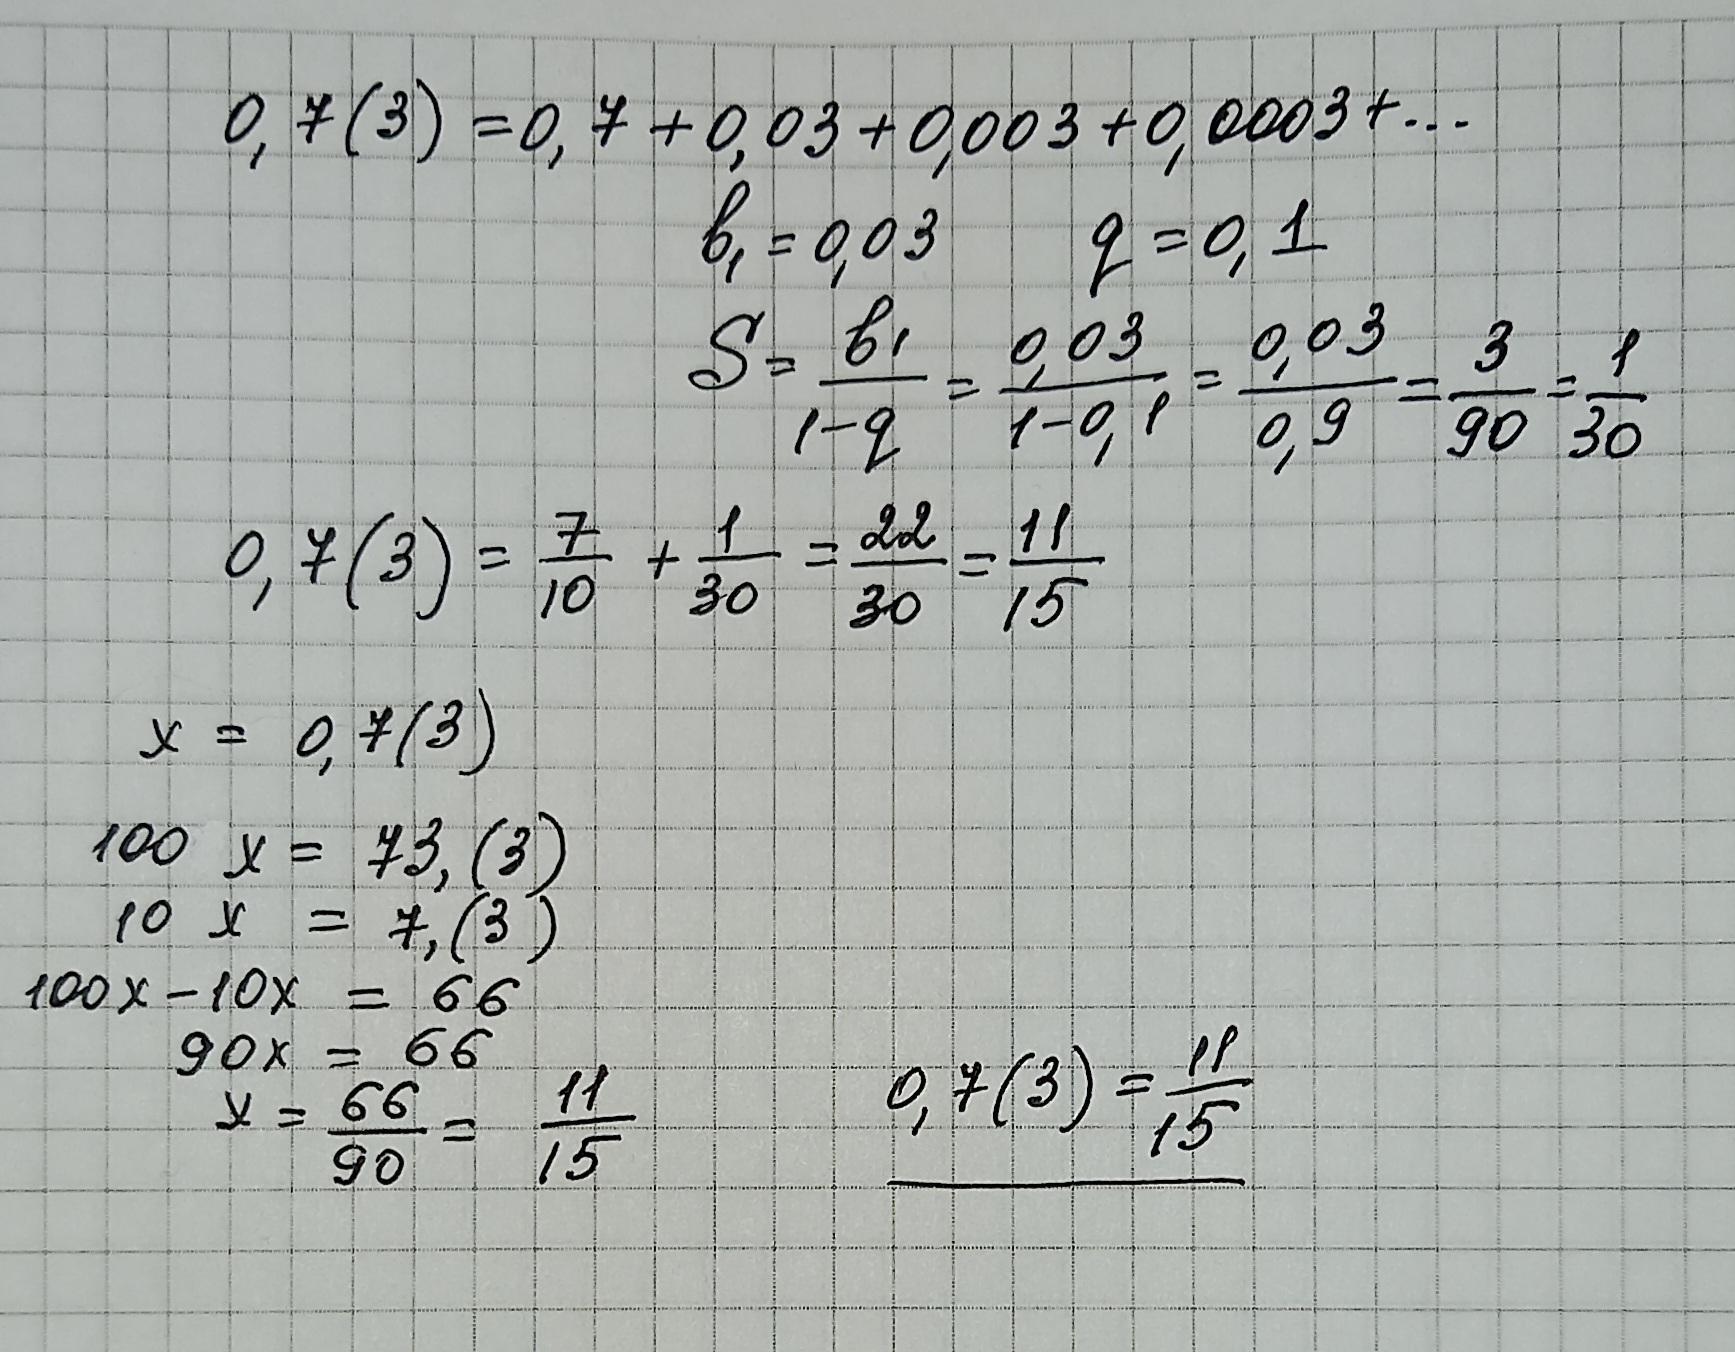 0,7(3) = 0,7 + 0,03 + 0,003 + 0,0003 + ...
b₁ = 0,03 q = 0,1
S = b₁/(1-q) = 0,03/(1-0,1) = 0,03/0,9 = 3/90 = 1/30
0,7(3) = 7/10 + 1/30 = 22/30 = 11/15
x = 0,7(3)
100 x = 73,(3)
10 x = 7,(3)
100x - 10x = 66
90x = 66
x = 66/90 = 11/15
0,7(3) = 11/15